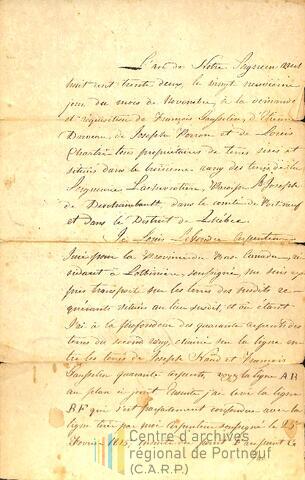 L'an de Notre Seigneur mil
huit cent trente deux, le vingt neuvième
jour du mois de Novembre, à la demande
et réquisition de François
de Joseph Perron et de Louis
Chartré tous propriétaires de terres sises et
situées dans le troisième rang des terres de la
Seigneurie Lachevrotière, Paroisse St Joseph
de Deschambault, dans le comté de Portneuf
et dans le District de Québec.
Je Louis Legendre arpenteur
Juré pour la Province du Bas-Canada, ré-
sidant à Lotbinière, soussigné, me suis ex-
près transporté sur les terres des susdits re-
quérants situées au lieu susdit, et où étant
J'ai à la profondeur des quarante arpents des
terres du second rang, chainé sur la ligne en-
tre les terres de Joseph et François
quarante arpents, voyez la ligne AB
au plan ci joint. Ensuite j'ai tiré la ligne
BF qui s'est parfaitement confondue avec la
ligne tirée par moi arpenteur soussigné le 25e
février
Centre d'archives
régional de Portneuf
(C.A.R.P.)